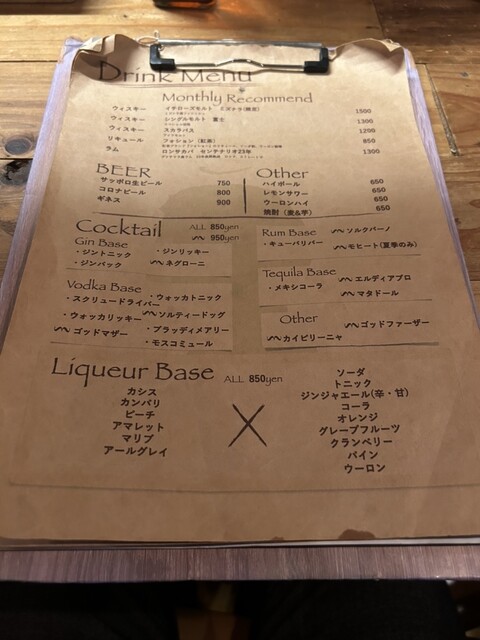 Drink Menu
Monthly Recommend
ウィスキー イチローズモルト ミズナラ(秩父) 1500
ウィスキー シングルモルト 富士 1300
ウィスキー スカラバス 1200
リキュール フォション(紅茶) 850
ラム ロンサカパ センテナリオ23年 1300
BEER
サッポロ生ビール 750
コロナビール 800
ギネス 900
Other
ハイボール 650
レモンサワー 650
ウーロンハイ 650
焼酎(麦&芋) 650
Cocktail ALL 850yen
950yen
Gin Base
・ジントニック ・ジンリッキー
・ジンバック ネグローニ
Vodka Base
・スクリュードライバー ・ウォッカトニック
・ウォッカリッキー ソルティードッグ
ゴッドマザー ・ブラッディメアリー
・モスコミュール
Rum Base ソルクバーノ
・キューバリバー モヒート(夏季のみ)
Tequila Base エルディアブロ
・メキシコーラ マタドール
Other ゴッドファーザー
カイピリーニャ
Liqueur Base ALL 850yen
カシス
カンパリ
ピーチ
アマレット
マリブ
アールグレイ
×
ソーダ
トニック
ジンジャエール(辛・甘)
コーラ
オレンジ
グレープフルーツ
クランベリー
パイン
ウーロン